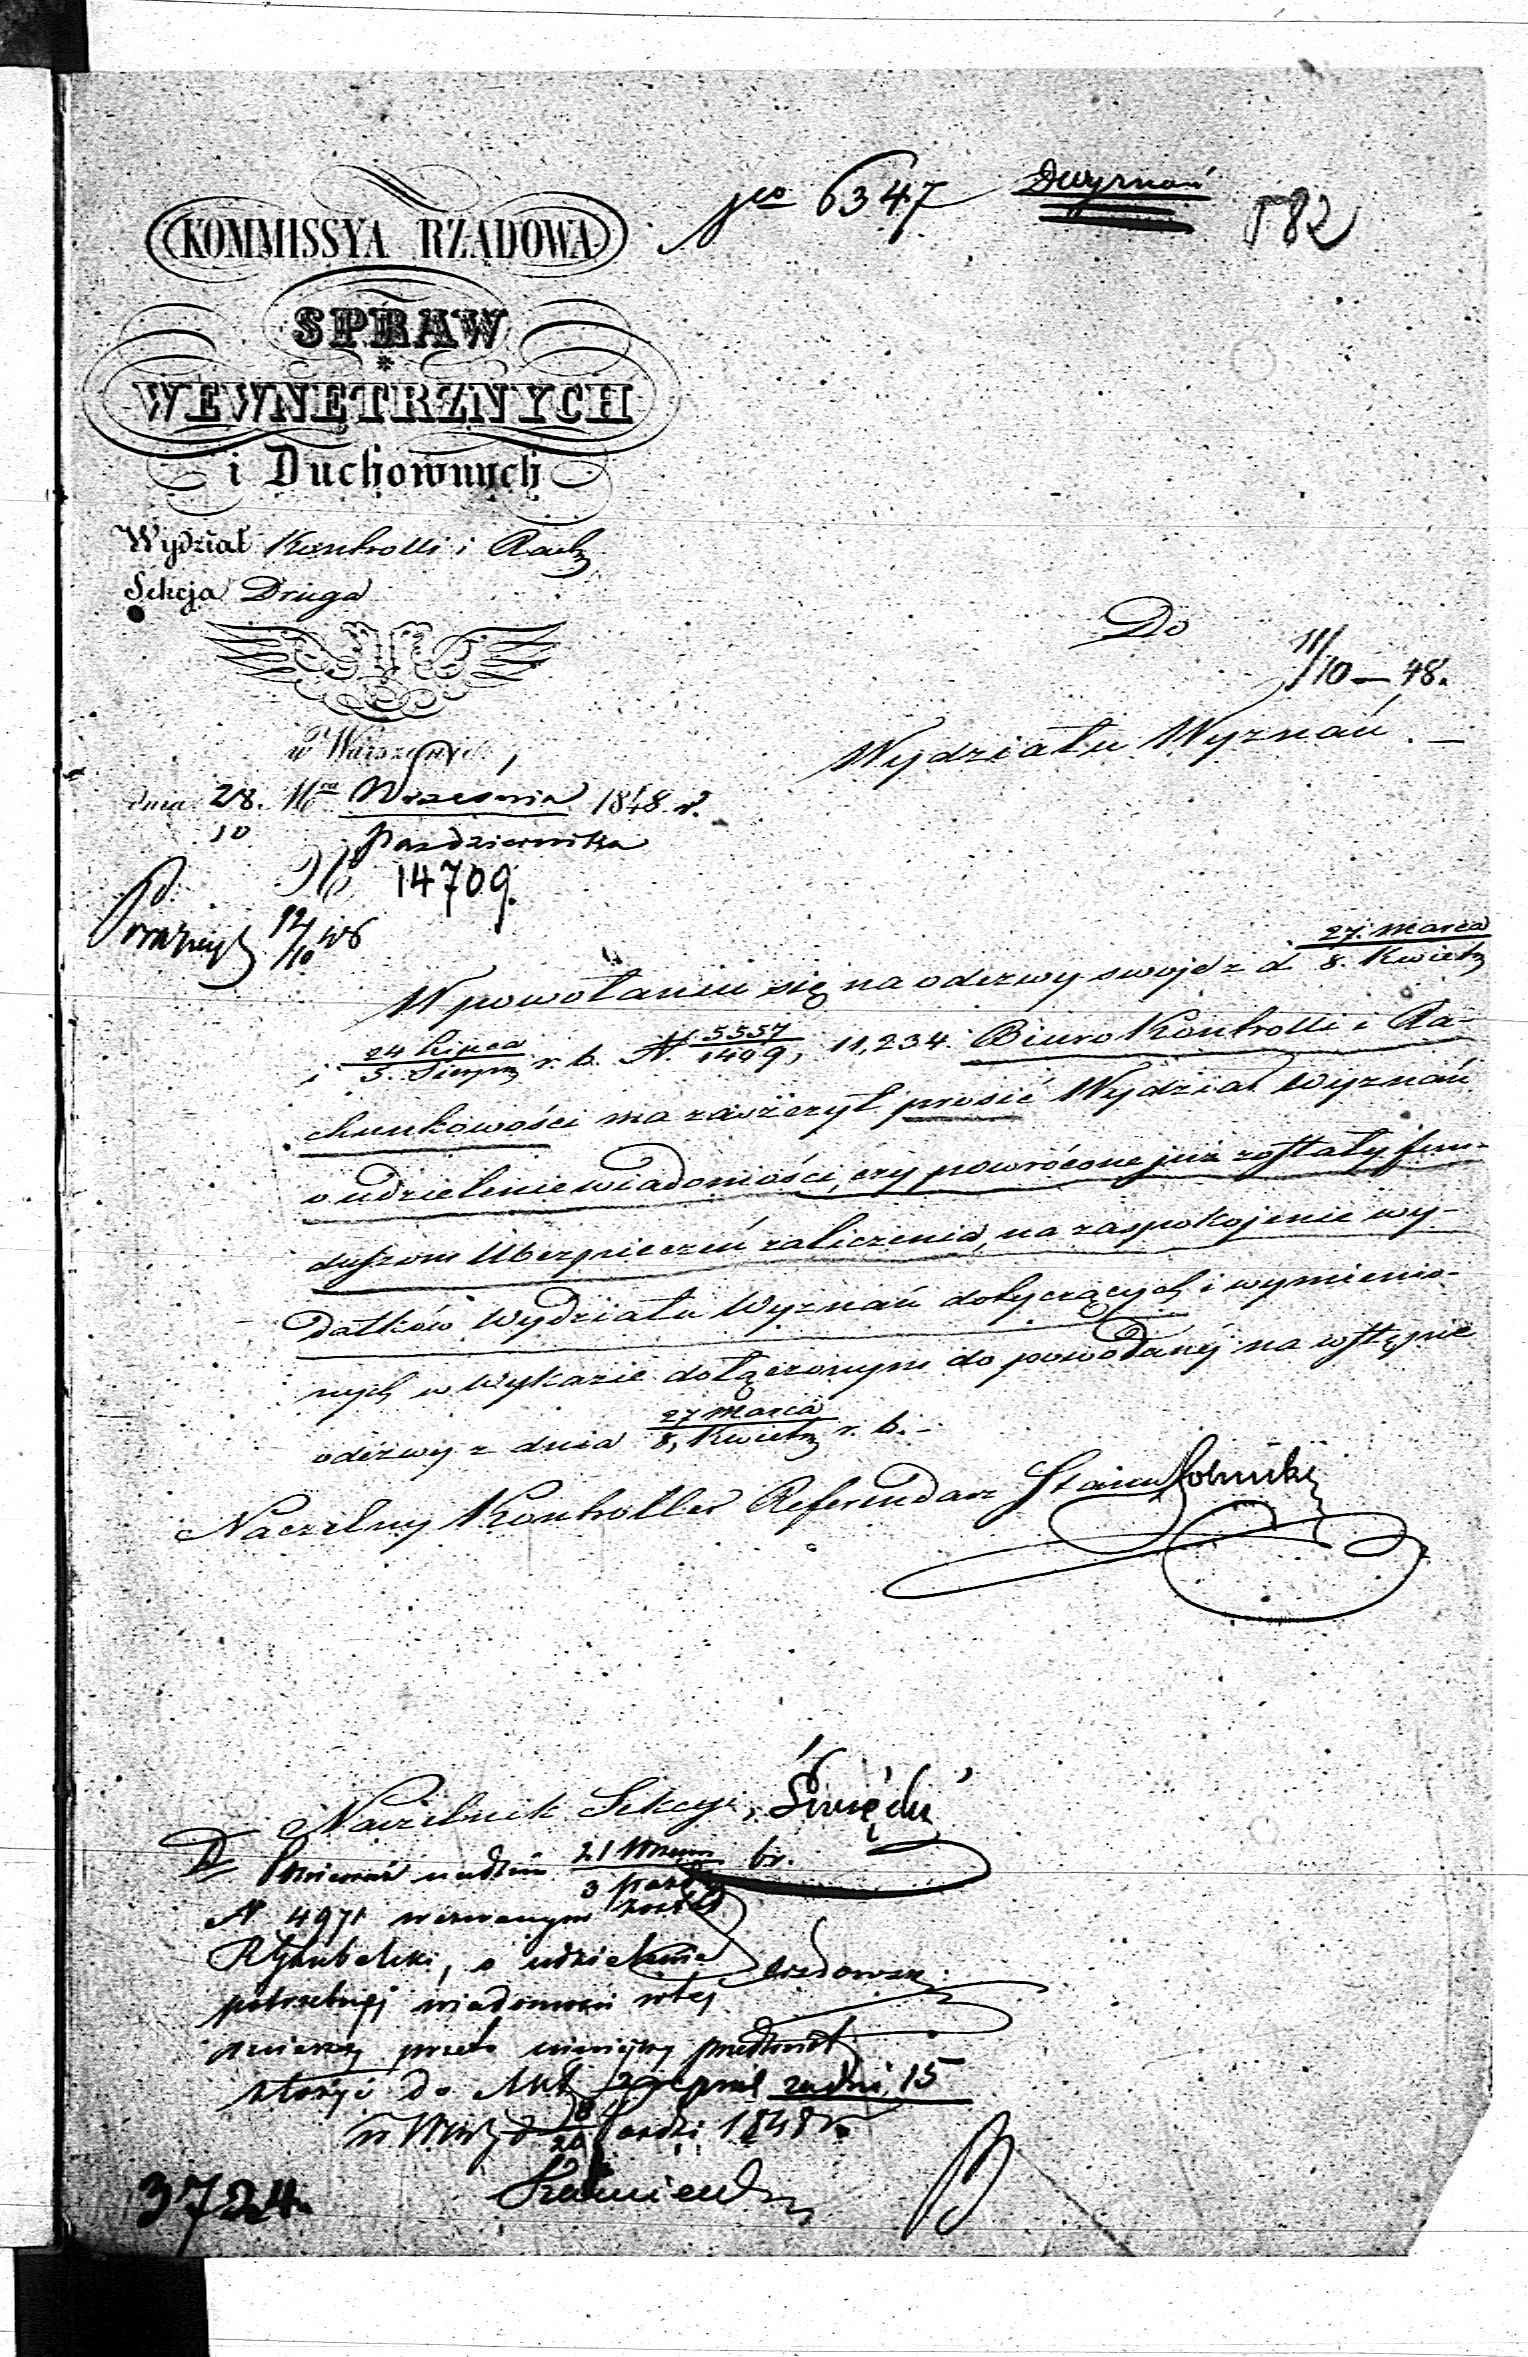 6347 DWyznań
582
KOMMISSYA RZĄDOWA
SPRAW
WEWNĘTRZNYCH
i Duchownych
Wydział Kontrolli i Rach
Sekcja Druga
w Warszawie
dnia 28. Września 1848 r.
10 Października
№ 14709.
12/10 48
Do
11/10 – 48.
Wydziału Wyznań. –
W powołaniu się na odezwy swoje z d. 27. Marca / 8. Kwietn
i 24 Lipca / 5. Sierpn r. b. N. 5557 / 1409, 11,234. Biuro Kontrolli i Ra-
chunkowości ma zaszczyt prosić Wydział Wyznań
o udzielenie wiadomości, czy powrócone już zostały fun-
duszom Ubezpieczeń zaliczenia, na zaspokojenie wy-
datków Wydziału Wyznań dotyczących i wymienio-
nych w Wykazie dołączonym do powołanéj na wstępie
odezwy z dnia 27 Marca / 8, Kwietn r. b. –
Naczelny Kontroller Referendarz Stanu
Naczelnik Sekcyi, Święcki
Ponieważ 21 Wrześ / 3 Paźdz br.
N 4971 wezwanym został
RGLubelski, o udzielenie
potrzebnej wiadomości w tej
mierze, przeto niniejszy przedmiot
złożyć do Akt za dni 15
w Warsz d 8/20 Paźdz 1848 r.
3724.